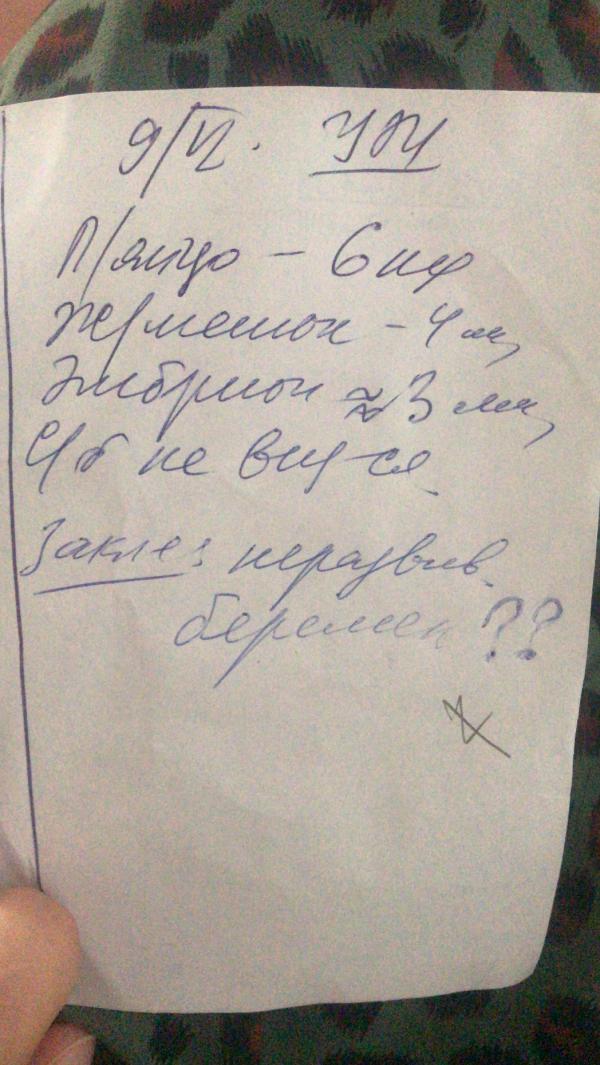 9/VI. УЗИ
Пл/яйцо - 6 нед
Ж/мешок - 4 мм,
Эмбрион ≈ 3 мм,
С/б не вид-ся.
Заклю: неразвив.
беремен ??